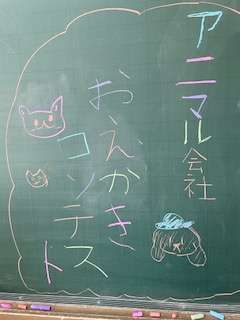 アニマル会社
おえかき
コンテスト